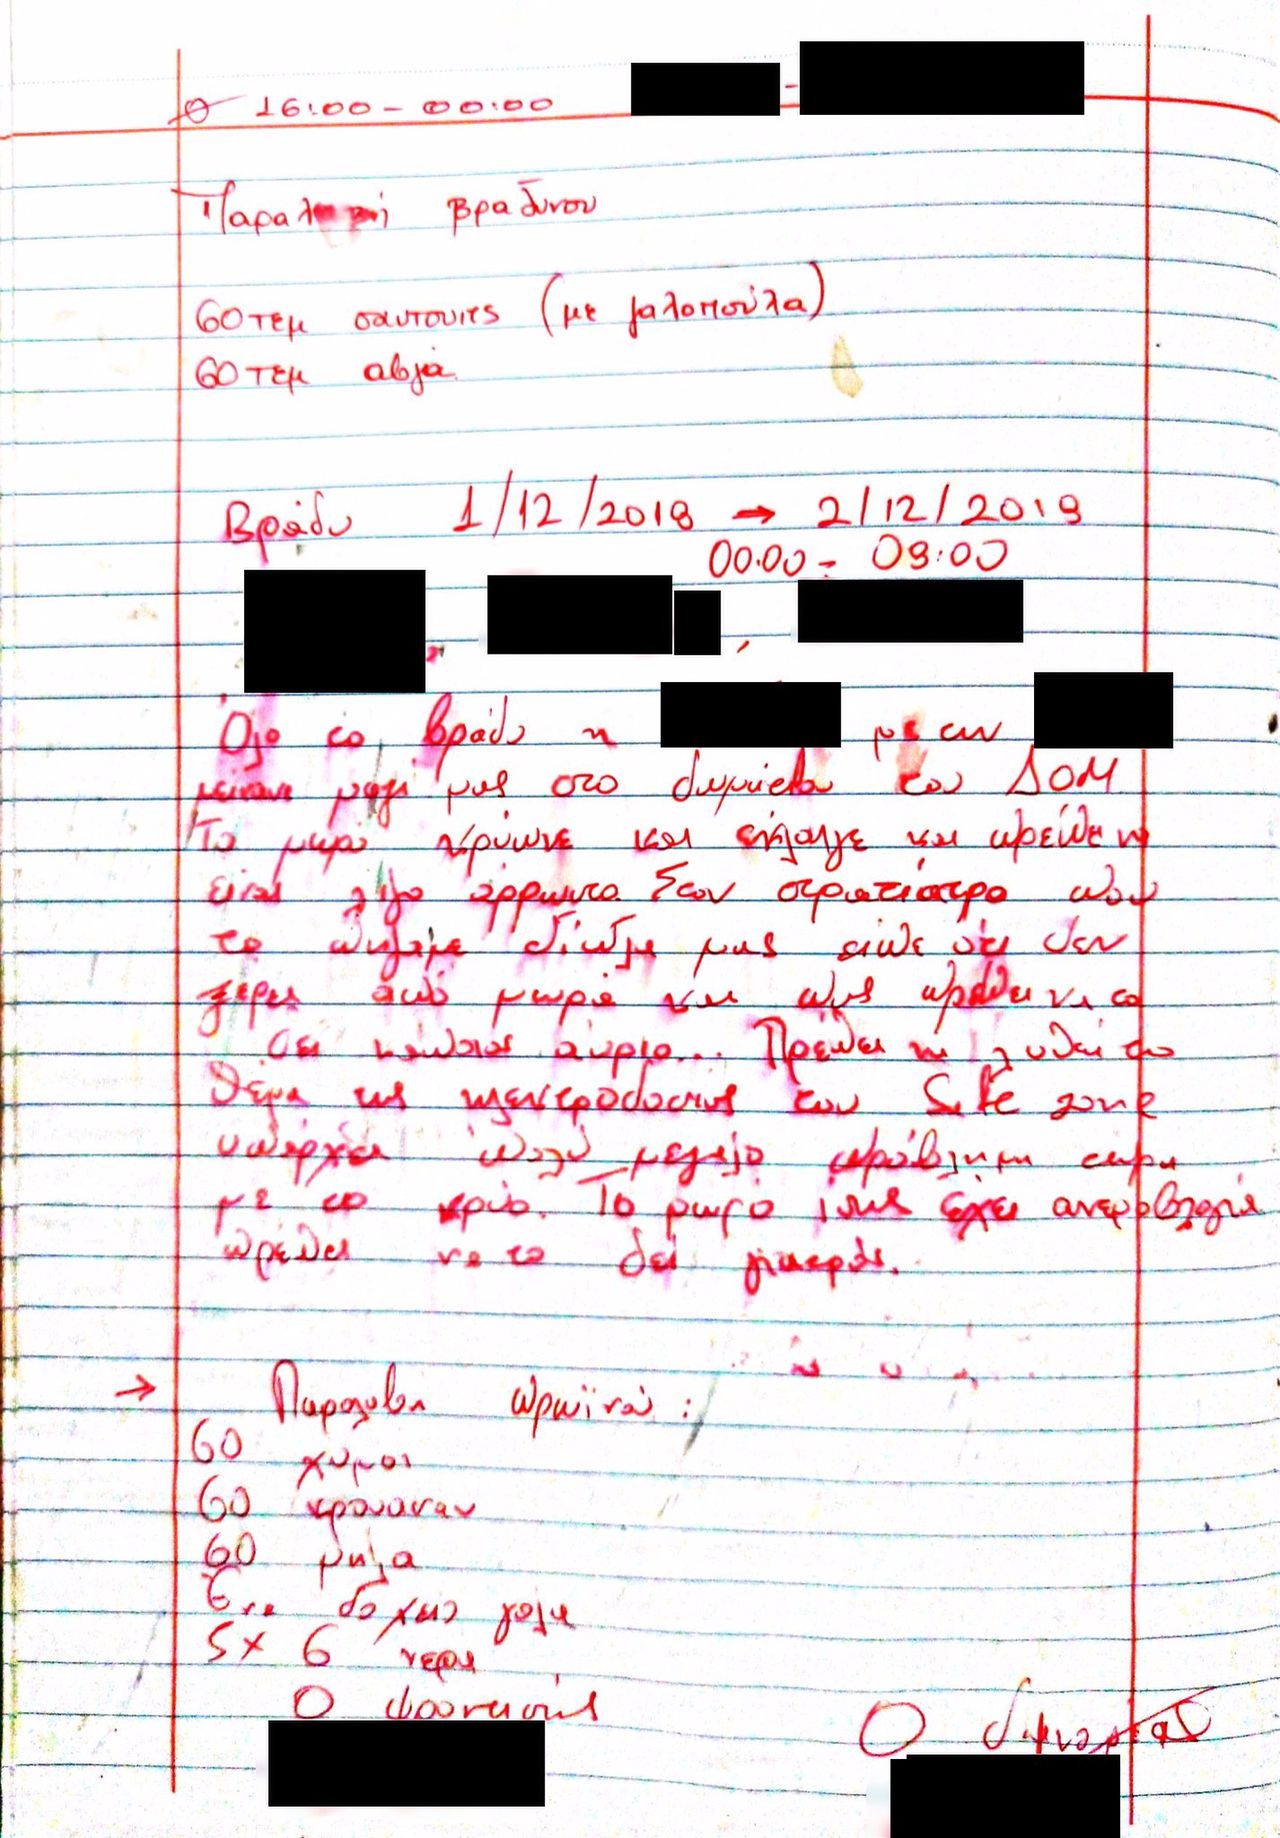 16:00 - 00:00
Παραλαβή βραδυνου
60 τεμ σαντουιτς (με γαλοπούλα)
60 τεμ αβγά
Βράδυ 1/12/2019 → 2/12/2019
00:00 - 09:00
Όλο το βράδυ η με την
μείνανε μαζί μας στο δωμάτιο του ΔΟΜ
Το μωρό κρύωνε και έκλαιγε και πρέπει να
είναι λίγο άρρωστο. Στον στρατίατρο που
το πήγαμε δίπλα μας είπε ότι δεν
ξέρει από μωρά και πως πρέπει να το
δει κάποιος αύριο... Πρέπει να λυθεί το
θέμα της ηλεκτροδοσιας του Safe zone
υπάρχει πολύ μεγάλο πρόβλημα τώρα
με το κρύο. Το μωρό ίσως έχει ανεμοβλογιά
πρέπει να το δει γιατρός.
→ Παραλαβη πρωϊνού:
60 χυμοι
60 κρουασαν
60 μηλα
6 δοχεια γαλα
5 x 6 νερα
Ο φροντιστής
Ο